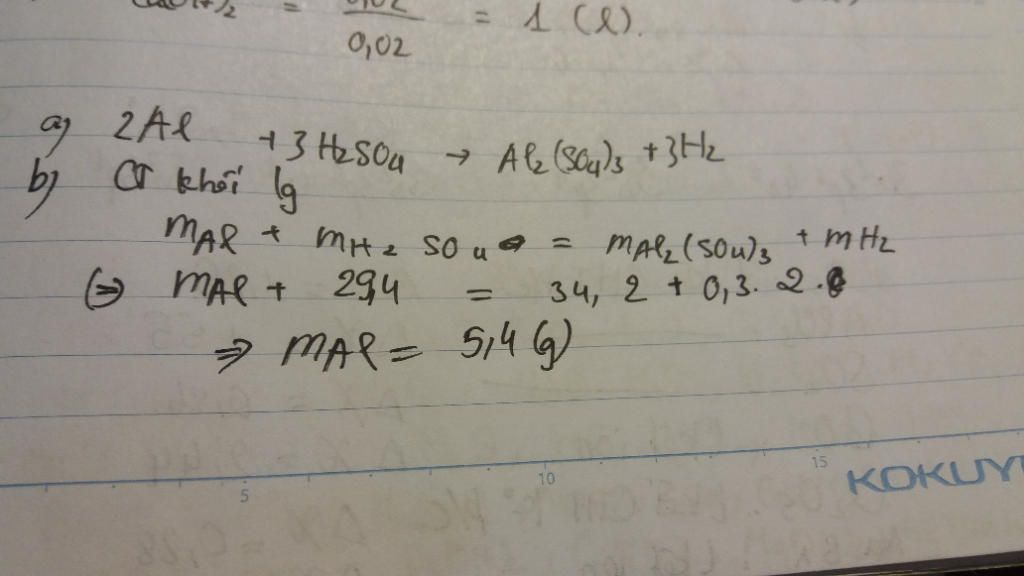 = 0,02 = 1 (l).
a) 2Al + 3H2SO4 → Al2(SO4)3 + 3H2
b) CT khối lg
mAl + mH2SO4 = mAl2(SO4)3 + mH2
(⇒ mAl + 29,4 = 34,2 + 0,3.2.
⇒ mAl = 5,4 (g)
5 10 15 KOKUY